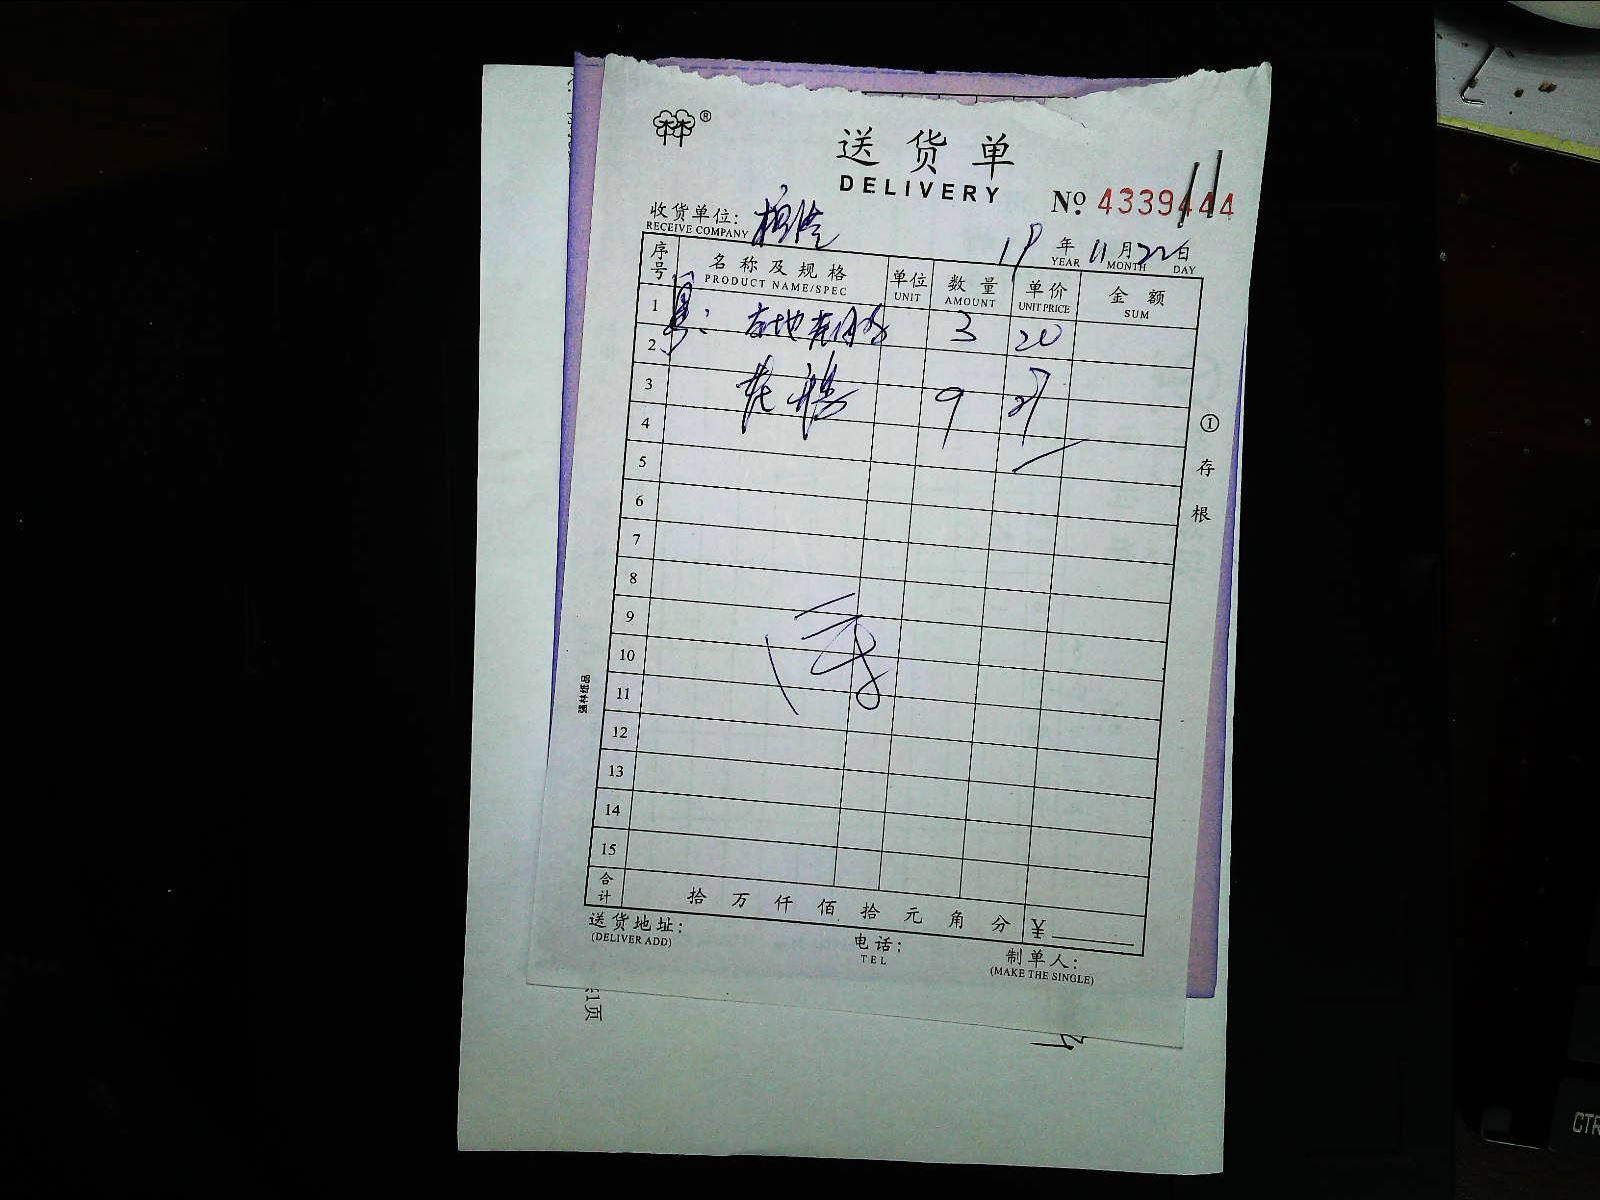 ®
送货单
DELIVERY
No. 4339444
收货单位:
RECEIVE COMPANY
19 年 11 月 22 日
YEAR MONTH DAY
序号 名称及规格 单位 数量 单价 金额
PRODUCT NAME/SPEC UNIT AMOUNT UNIT PRICE SUM
1 3 20
2
3 9
4
5
6
7
8
9
10
11
12
13
14
15
合计 拾 万 仟 佰 拾 元 角 分 ¥
送货地址: 电话: 制单人:
(DELIVER ADD) TEL (MAKE THE SINGLE)
①存根
强林纸品
1页
CTR